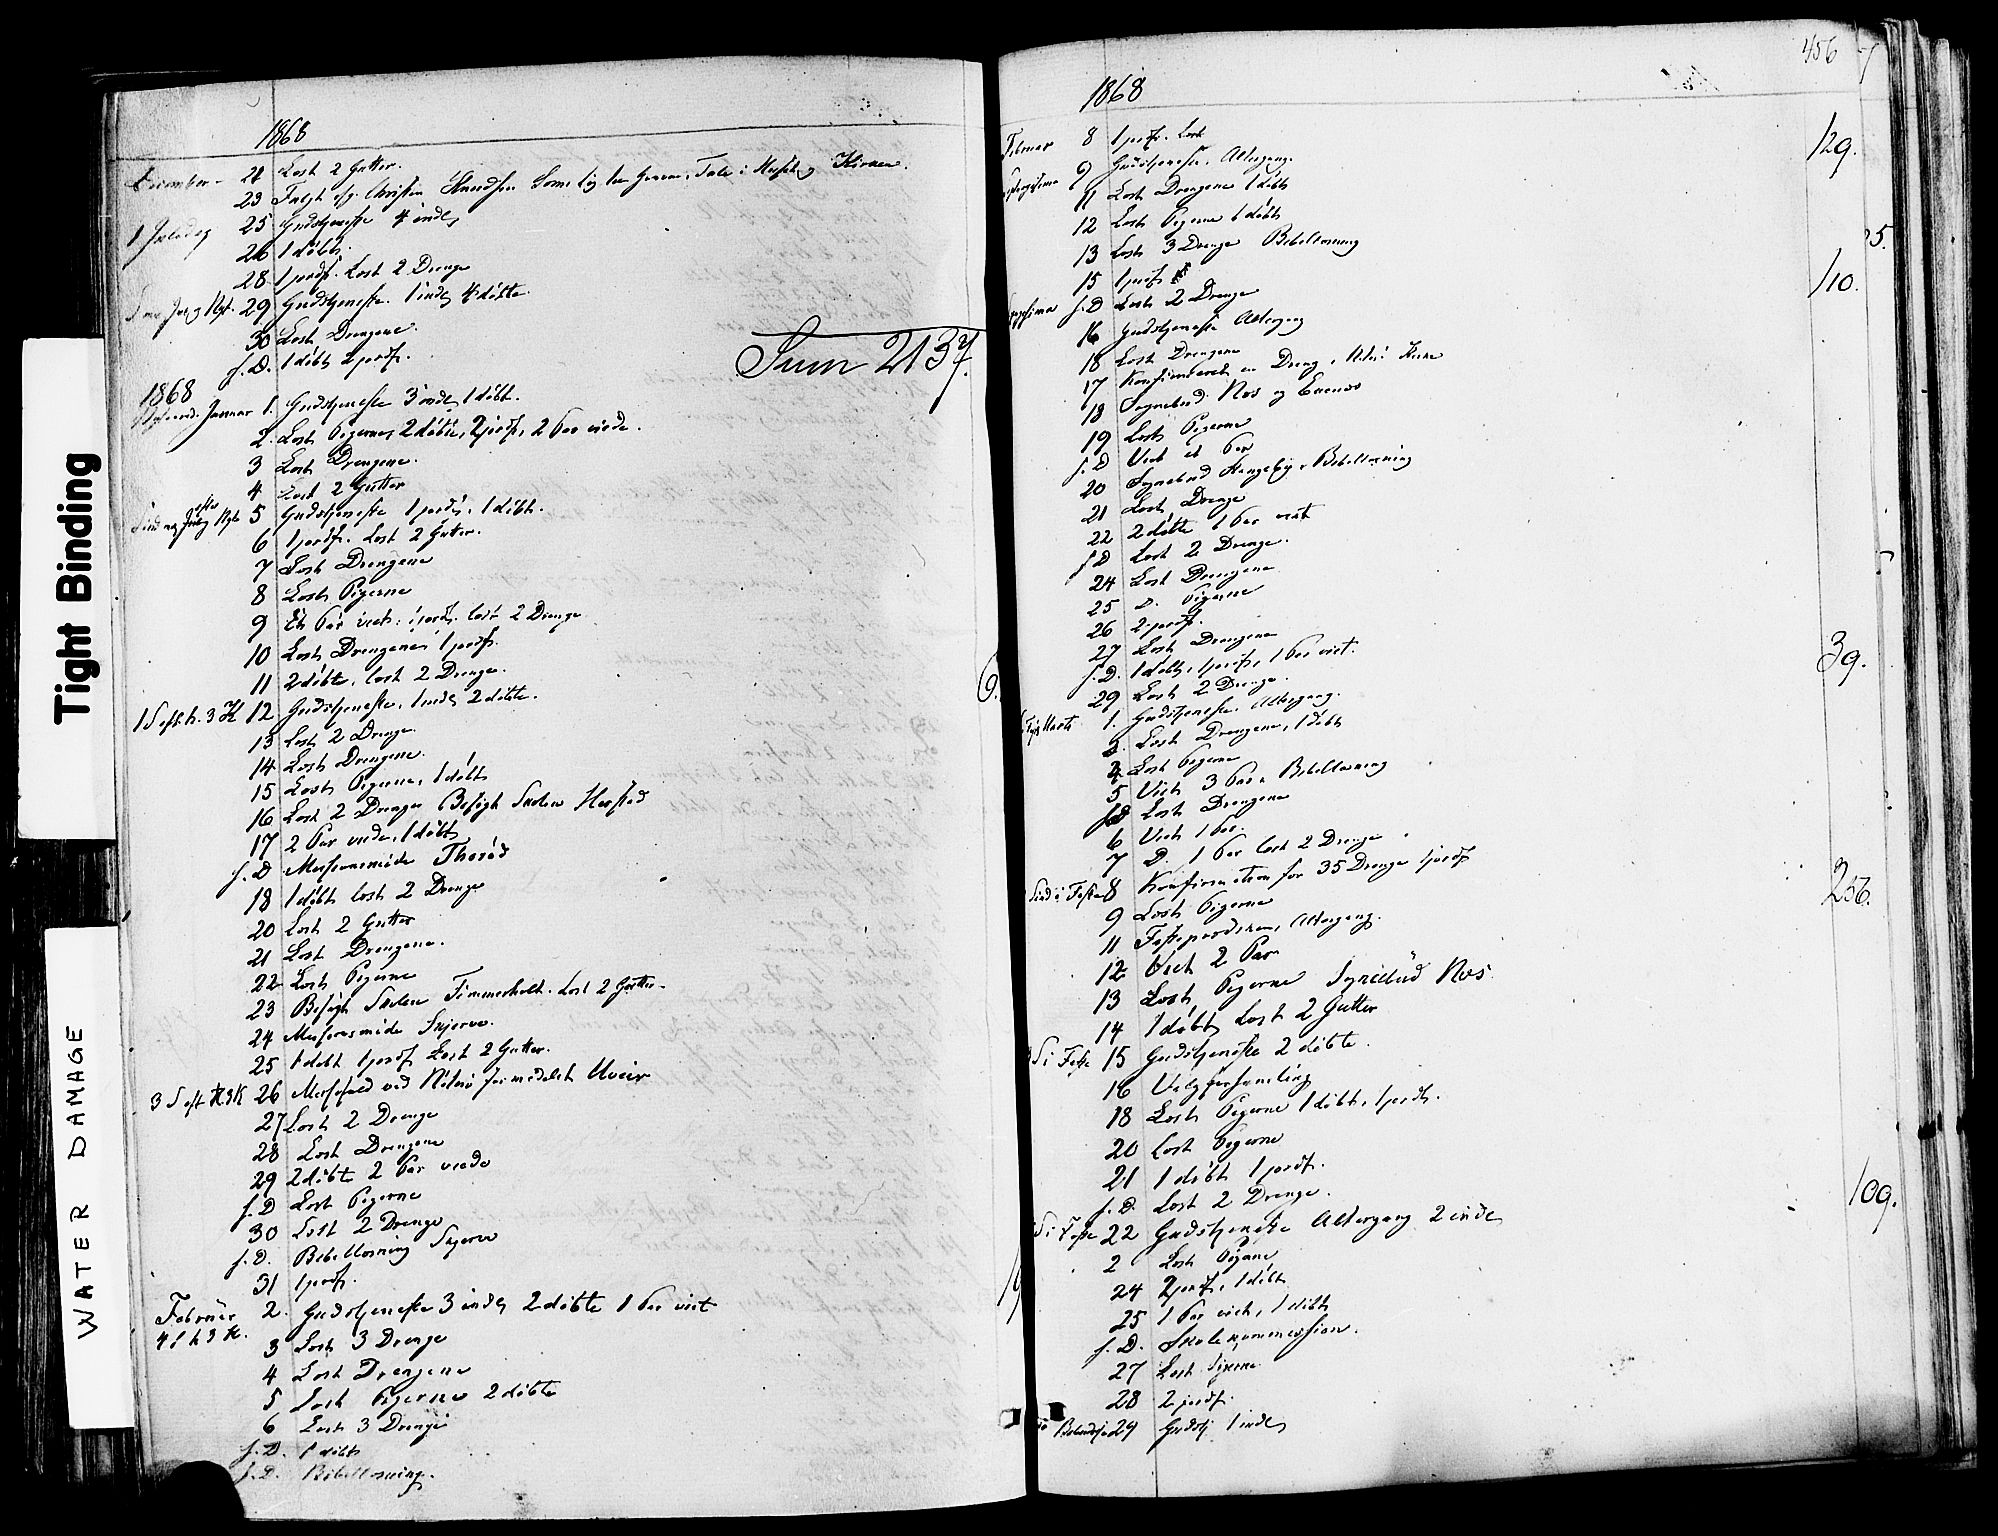 Tight Binding
WATER DAMAGE
1868
21 Læst 2 Gutter.
23 Kirken.
1 Juledag 25 Gudstjeneste 4 indl
26 1 døbt.
28 1 jordf. Læst 2 Drenge
29 Gudstjeneste. 1 indl 4 døbte
30 Læst Drengene.
s. D. 1 døbt 2 jordf.
Sum 2137.
1868
Januar 1. Gudstjeneste 3 indl, 1 døbt.
2. Læst Pigerne, 2 døbte, 2 jordf, 2 Par viede.
3 Læst Drengene.
4 Læst 2 Gutter
5 Gudstjeneste 1 jordf, 1 døbt.
6 1 jordf. Læst 2 Gutter.
7 Læst Drengene
8 Læst Pigerne
9 Et Par viet. 1 jordf. læst 2 Drenge
10 Læst Drengene 1 jordf.
11 2 døbte, læst 2 Drenge.
1 S eft. h. 3 K 12 Gudstjeneste, 1 indl, 2 døbte.
13 Læst 2 Drenge
14 Læst Drengene.
15 Læst Pigerne, 1 døbt
16 Læst 2 Drenge Besøgt Skolen
17 2 Par viede, 1 døbt
s. D Missionsmøde
18 1 døbt læst 2 Drenge
20 Læst 2 Gutter
21 Læst Drengene.
22 Læst Pigerne
23 Besøgt Skolen Timmerholt. Læst 2 Gutter
24 Missionsmøde Skjerve.
25 1 døbt 1 jordf Læst 2 Gutter.
3 S eft H 3 K 26 Messefald ved formedelst Uveir
27 Læst 2 Drenge
28 Læst Drengene
29 2 døbte 2 Par viede
s. D Læst Pigerne
30 Læst 2 Drenge
s. D. Bibellæsning Skjerve
31 1 jordf.
Februar 2. Gudstjeneste 3 indl, 2 døbte 1 Par viet
4 S h 3 K.
3 Læst 3 Drenge
4 Læst Drengene
5 Læst Pigerne 2 døbte
6 Læst 3 Drenge
s. D. 1 døbt
s. D. Bibellæsning.
456
1868
Februar 8 1 jordf. Læst
9 Gudstjeneste. Altergang. 129.
11 Læst Drengene 1 døbt
12 Læst Pigerne 1 døbt
13 Læst 3 Drenge Bibellæsning
15 1 jordf
s. D Læst 2 Drenge
16 Gudstjeneste Altergang 110.
18 Læst Drengene
17 Konfirmeret en Dreng i Kirke
18 Sognebud Næs og
19 Læst Pigerne
s. D Viet et Par
20 Sognebud Bibellæsning
21 Læst Drenge
22 2 døbte 1 Par viet
s. D Læst 2 Drenge.
24 Læst Drengene
25 D. Pigerne
26 2 jordf.
27 Læst Drengene
s. D. 1 døbt, 1 jordf, 1 Par viet.
29 Læst 2 Drenge
Marts 1. Gudstjeneste. Altergang. 39.
3. Læst Drengene, 1 døbt
4 Læst Pigerne
5 Viet 3 Par. Bibellæsning
s. D Læst Drengene
6 Viet 1 Par.
7 D. 1 Par læst 2 Drenge
Sønd i Faste 8 Konfirmation for 35 Drenge 1 jordf
9 Læst Pigerne
11 Fasteprædiken, Altergang. 256.
12 Viet 2 Par
13 Læst Pigerne Sognebud Næs
14 1 døbt Læst 2 Gutter
S i Faste 15 Gudstjeneste 2 døbte.
16 Valgforsamling
18 Læst Pigerne 1 døbt, 1 jordf.
20 Læst Pigerne
21 1 døbt 1 jordf.
s. D. Læst 2 Drenge.
S i Faste 22 Gudstjeneste Altergang 2 indl 109.
2 Læst Pigerne
24 2 jordf, 1 døbt
25 1 Par viet, 1 døbt
s. D. Skolekommission.
27 Læst Pigerne
28 2 jordf.
29 Gudstj 1 indl